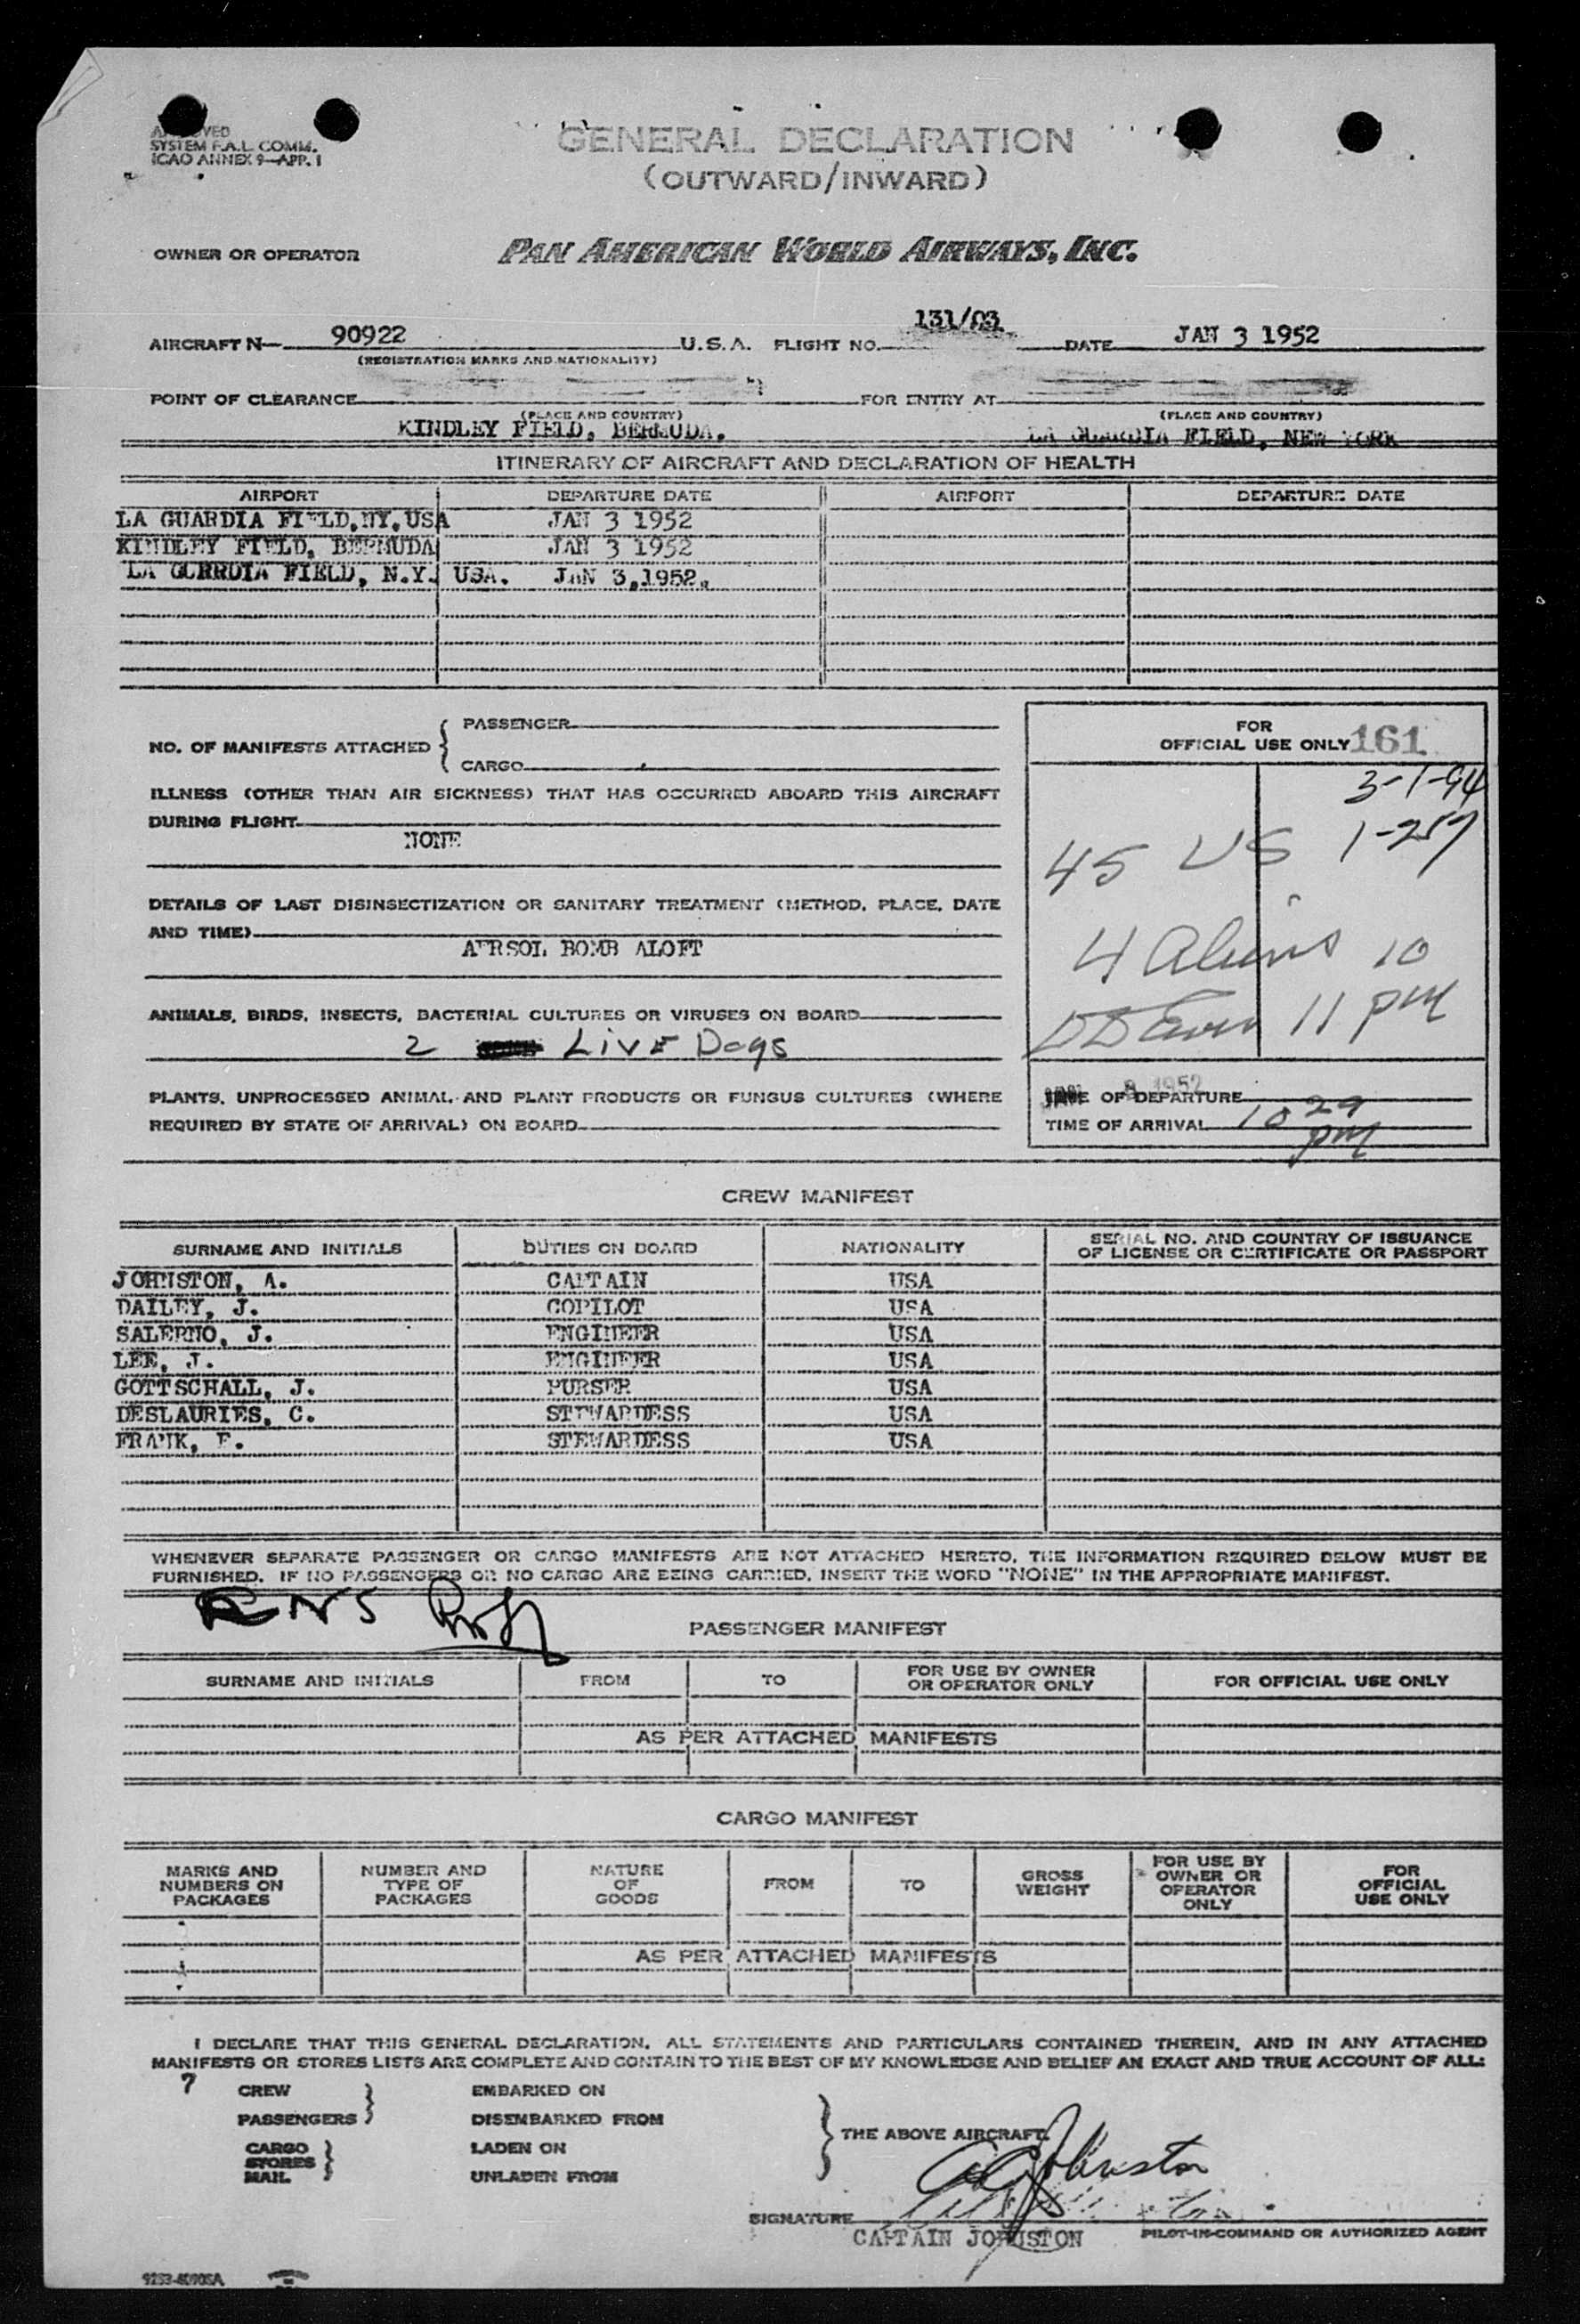 SYSTEM F.A.L. COMM.
ICAO ANNEX 9—APP. 1
GENERAL DECLARATION
(OUTWARD/INWARD)
OWNER OR OPERATOR PAN AMERICAN WORLD AIRWAYS, INC.
131/03
AIRCRAFT N— 90922 U.S.A. FLIGHT NO. DATE JAN 3 1952
(REGISTRATION MARKS AND NATIONALITY)
POINT OF CLEARANCE FOR ENTRY AT
(PLACE AND COUNTRY) (PLACE AND COUNTRY)
KINDLEY FIELD, BERMUDA. LA GUARDIA FIELD, NEW YORK
ITINERARY OF AIRCRAFT AND DECLARATION OF HEALTH
AIRPORT DEPARTURE DATE AIRPORT DEPARTURE DATE
LA GUARDIA FIELD,NY,USA JAN 3 1952
KINDLEY FIELD, BERMUDA JAN 3 1952
LA GURRDIA FIELD, N.Y. USA. JAN 3,1952.
NO. OF MANIFESTS ATTACHED { PASSENGER
CARGO
FOR
OFFICIAL USE ONLY 161
3-1-94
1-257
45 US
4 Aliens 10
11 pm
ILLNESS (OTHER THAN AIR SICKNESS) THAT HAS OCCURRED ABOARD THIS AIRCRAFT
DURING FLIGHT
NONE
DETAILS OF LAST DISINSECTIZATION OR SANITARY TREATMENT (METHOD, PLACE, DATE
AND TIME)
AERSOL BOMB ALOFT
ANIMALS, BIRDS, INSECTS, BACTERIAL CULTURES OR VIRUSES ON BOARD
2 LivE Dogs
PLANTS, UNPROCESSED ANIMAL AND PLANT PRODUCTS OR FUNGUS CULTURES (WHERE
REQUIRED BY STATE OF ARRIVAL) ON BOARD
JAN 3 1952
TIME OF DEPARTURE
TIME OF ARRIVAL 10 29 pm
CREW MANIFEST
SURNAME AND INITIALS DUTIES ON BOARD NATIONALITY SERIAL NO. AND COUNTRY OF ISSUANCE
OF LICENSE OR CERTIFICATE OR PASSPORT
JOHNSTON, A. CAPTAIN USA
DAILEY, J. COPILOT USA
SALERNO, J. ENGINEER USA
LEE, J. ENGINEER USA
GOTTSCHALL, J. PURSER USA
DESLAURIES, C. STEWARDESS USA
FRANK, F. STEWARDESS USA
WHENEVER SEPARATE PASSENGER OR CARGO MANIFESTS ARE NOT ATTACHED HERETO, THE INFORMATION REQUIRED BELOW MUST BE
FURNISHED. IF NO PASSENGERS OR NO CARGO ARE BEING CARRIED, INSERT THE WORD "NONE" IN THE APPROPRIATE MANIFEST.
PASSENGER MANIFEST
SURNAME AND INITIALS FROM TO FOR USE BY OWNER
OR OPERATOR ONLY FOR OFFICIAL USE ONLY
AS PER ATTACHED MANIFESTS
CARGO MANIFEST
MARKS AND
NUMBERS ON
PACKAGES NUMBER AND
TYPE OF
PACKAGES NATURE
OF
GOODS FROM TO GROSS
WEIGHT FOR USE BY
OWNER OR
OPERATOR
ONLY FOR
OFFICIAL
USE ONLY
AS PER ATTACHED MANIFESTS
I DECLARE THAT THIS GENERAL DECLARATION, ALL STATEMENTS AND PARTICULARS CONTAINED THEREIN, AND IN ANY ATTACHED
MANIFESTS OR STORES LISTS ARE COMPLETE AND CONTAIN TO THE BEST OF MY KNOWLEDGE AND BELIEF AN EXACT AND TRUE ACCOUNT OF ALL:
7 CREW EMBARKED ON
PASSENGERS DISEMBARKED FROM
THE ABOVE AIRCRAFT.
CARGO LADEN ON
STORES
MAIL UNLADEN FROM
A Johnston
SIGNATURE
CAPTAIN JOHNSTON PILOT-IN-COMMAND OR AUTHORIZED AGENT